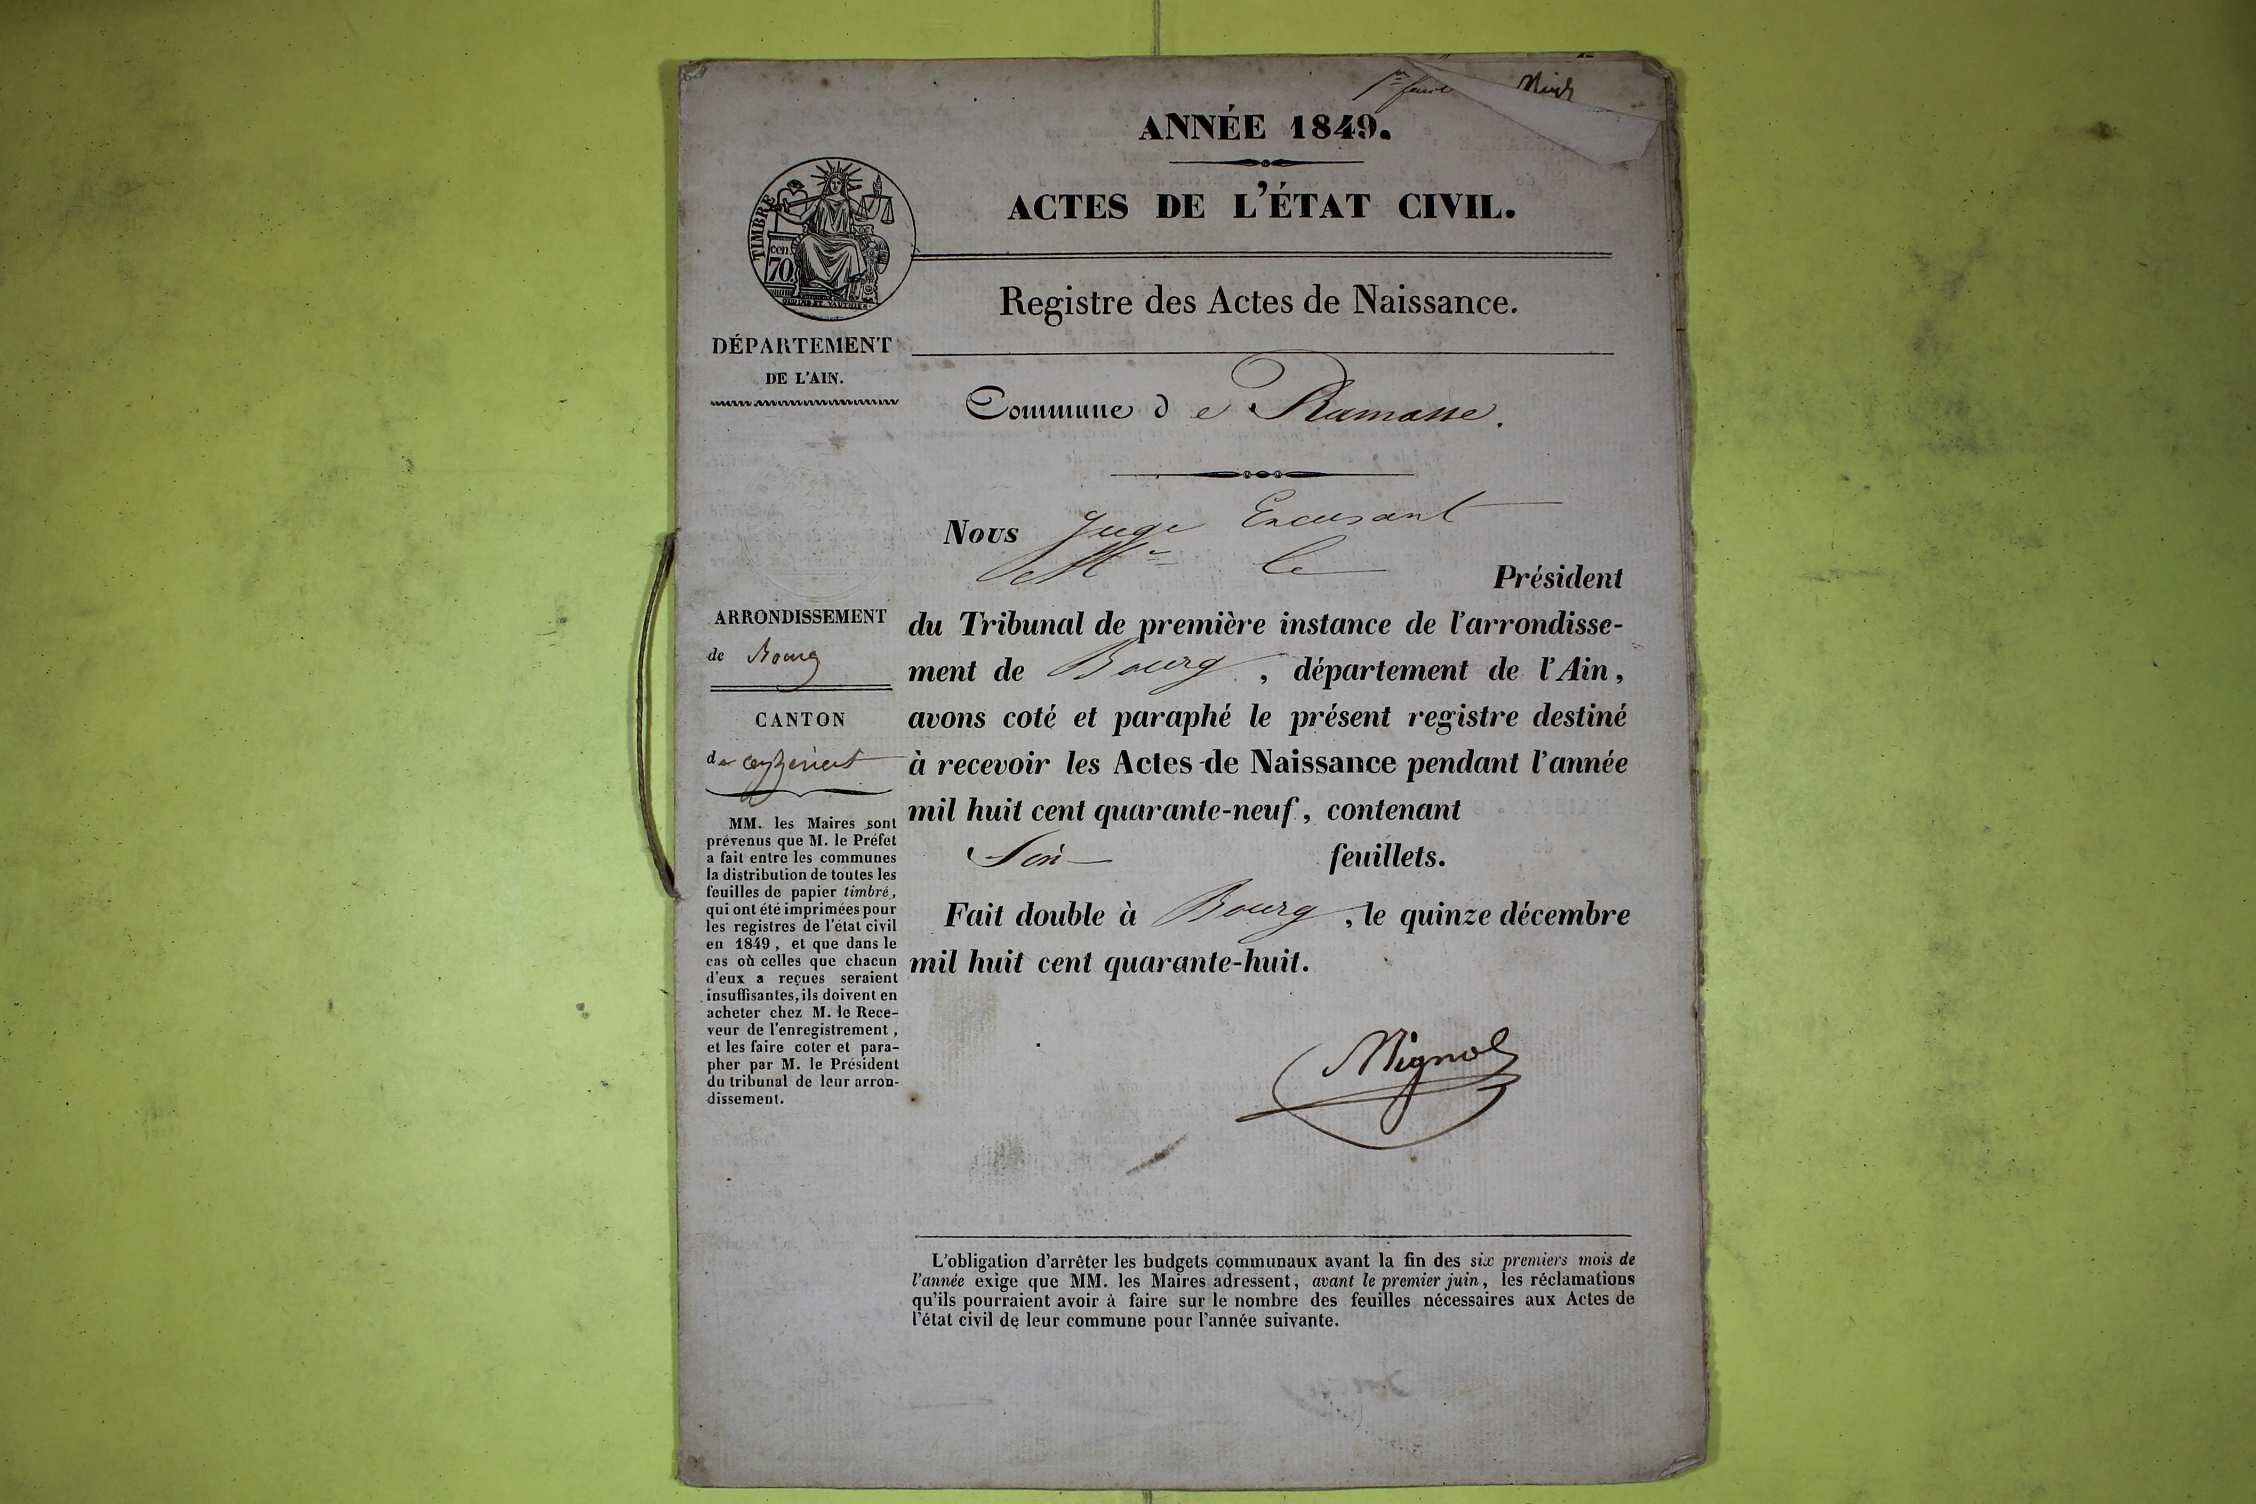 1re feuille
ANNÉE 1849.
ACTES DE L'ÉTAT CIVIL.
Registre des Actes de Naissance.
TIMBRE
cen
70
DÉPARTEMENT
DE L'AIN.
Commune de Ramasse.
Nous Juge Excusant
Mr le Président
du Tribunal de première instance de l'arrondisse-
ment de Bourg, département de l'Ain,
avons coté et paraphé le présent registre destiné
à recevoir les Actes de Naissance pendant l'année
mil huit cent quarante-neuf, contenant
feuillets.
Fait double à Bourg, le quinze décembre
mil huit cent quarante-huit.
Mignot
ARRONDISSEMENT
de Bourg
CANTON
de Ceyzériat
MM. les Maires sont
prévenus que M. le Préfet
a fait entre les communes
la distribution de toutes les
feuilles de papier timbré,
qui ont été imprimées pour
les registres de l'état civil
en 1849, et que dans le
cas où celles que chacun
d'eux a reçues seraient
insuffisantes, ils doivent en
acheter chez M. le Rece-
veur de l'enregistrement,
et les faire coter et para-
pher par M. le Président
du tribunal de leur arron-
dissement.
L'obligation d'arrêter les budgets communaux avant la fin des six premiers mois de
l'année exige que MM. les Maires adressent, avant le premier juin, les réclamations
qu'ils pourraient avoir à faire sur le nombre des feuilles nécessaires aux Actes de
l'état civil de leur commune pour l'année suivante.